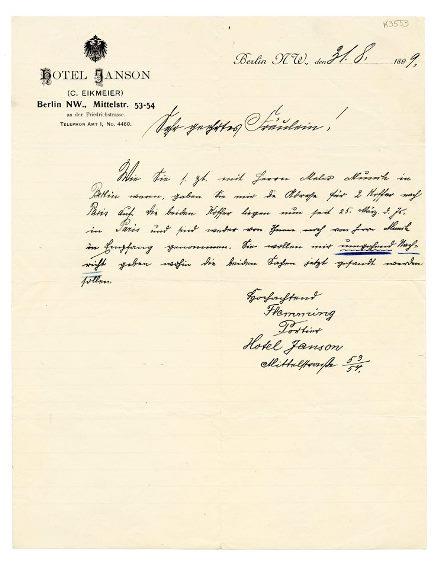 K3553
HOTEL JANSON
(C. EIKMEIER)
Berlin NW., Mittelstr. 53-54
an der Friedrichstrasse.
TELEPHON AMT I, No. 4460.
Berlin NW., den 31. 8. 1899.
Sehr geehrtes Fräulein!
Wie Sie s. Zt. mit Herrn Maler Munch in
Berlin waren, gaben Sie mir die Adresse für 2 Koffer nach
Paris auf, die beiden Koffer liegen nun seit 25. März d. Js.
in Paris und sind weder von Ihnen noch von Herr Munch
in Empfang genommen. Sie wollen mir umgehend Nach-
richt geben wohin die beiden Sachen jetzt gesandt werden
sollen.
Hochachtend
Flemming
Portier
Hotel Janson
Mittelstraße 53/54.